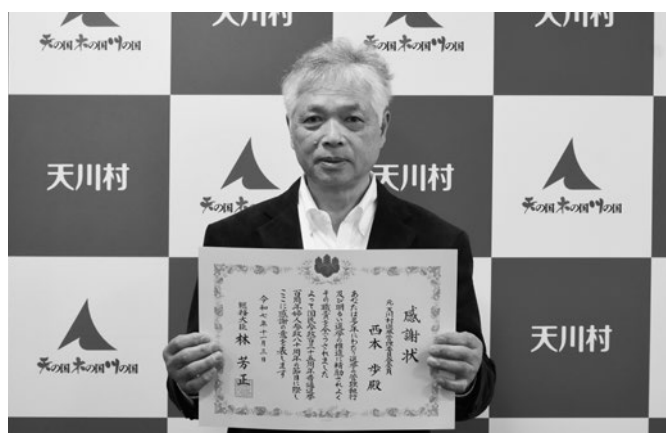 天川村
天川村
天の国 木の国 川の国
天の国 木の国 川の国
天川村
天の国 木の国 川の国
天川村
天の国 木の国 川の国
天の国 木の国 川の国
天川村
感謝状
元天川村選挙管理委員会委員
西本 歩殿
あなたは多年にわたり選挙の管理執行
及び明るい選挙の推進に精励されよく
その職責を全うされました
よって国民参政百三十五周年普通選挙
百周年婦人参政八十周年の節目に際し
ここに感謝の意を表します
令和七年十一月三日
総務大臣 林 芳正